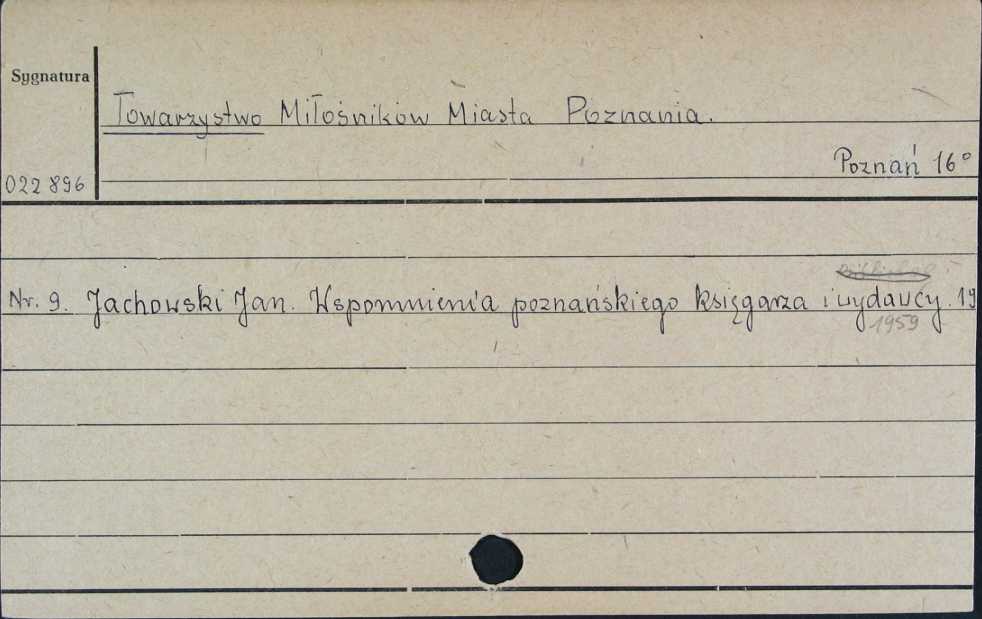 Sygnatura
Towarzystwo Miłośników Miasta Poznania.
Poznań 16°
022 896
Nr. 9. Jachowski Jan. Wspomnienia poznańskiego księgarza i wydawcy. 19
1959